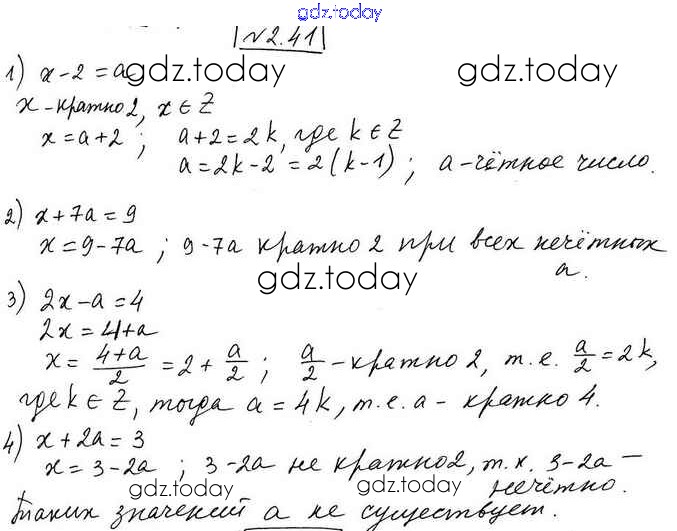 gdz.today
№2.41
1) x-2=a
gdz.today
gdz.today
x-кратно 2, x∈Z
x=a+2; a+2=2k, где k∈Z
a=2k-2=2(k-1); a-чётное число.
2) x+7a=9
x=9-7a; 9-7a кратно 2 при всех нечётных
a.
gdz.today
3) 2x-a=4
2x=4+a
x=(4+a)/2=2+a/2; a/2-кратно 2, т.е. a/2=2k,
где k∈Z, тогда a=4k, т.е. a- кратно 4.
4) x+2a=3
x=3-2a; 3-2a не кратно 2, т.к. 3-2a —
нечётно.
gdz.today
gdz.today
Таких значений a не существует.